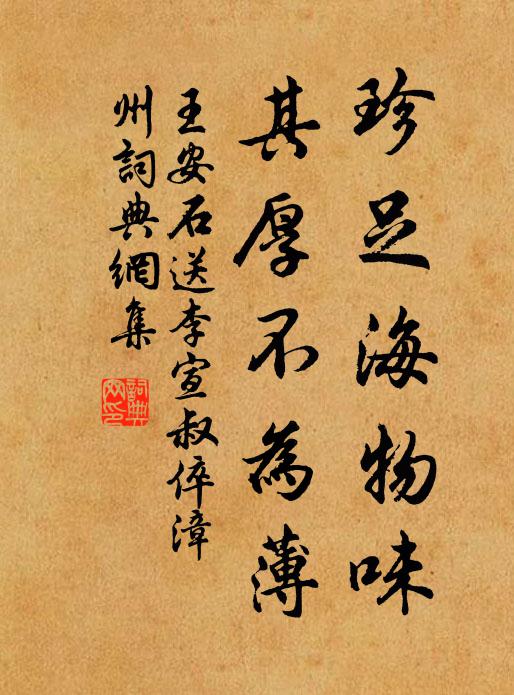 珍足海物味
其厚不為薄
王安石送李宣叔倅漳
州詞典網集
詞典網印